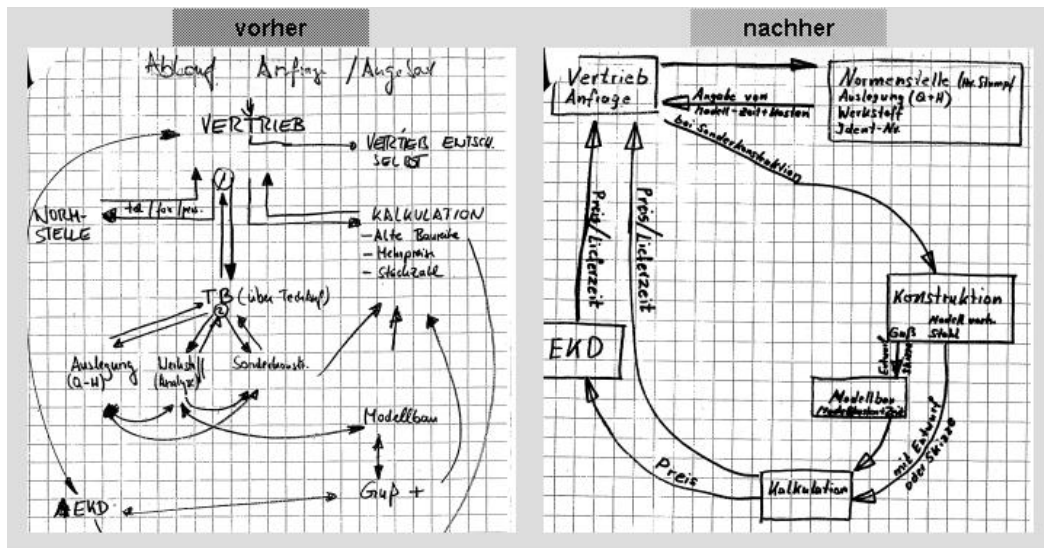 vorher
Ablauf Anfrage / Angebot
VERTRIEB
VERTRIEB ENTSCH.
SELBST
1
tel / fax / pers.
NORM-
STELLE
KALKULATION
- Alte Baureihe
- Mehrpreise
- Stückzahl
TB (über Techkauf)
2
Auslegung
(Q-H)
Werkstoff
(Analyse)
Sonderkonstr.
Modellbau
Guß +
EKD
nachher
Vertrieb
Anfrage
Normenstelle (Hr. Stumpf
Auslegung (Q+H)
Werkstoff
Ident-Nr.
Angabe von
Modell-Zeit+Kosten
bei Sonderkonstruktion
Preis/Lieferzeit
Preis/Lieferzeit
Konstruktion
Modell vorh.
Guß Stahl
Entwurf
Skizze
EKD
Modellbau
Modellkosten+Zeit
mit Entwurf
oder Skizze
Preis
Kalkulation